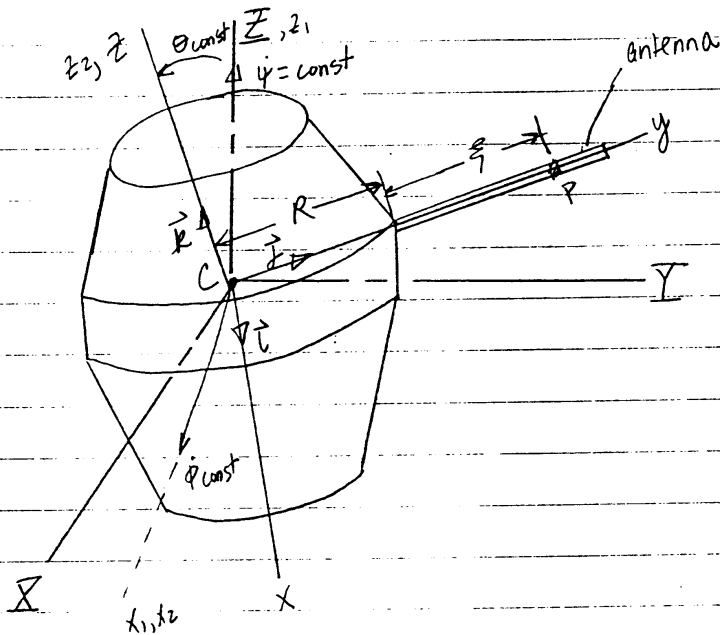 θ const
Z, z₁
z₂, z
ψ̇ = const
antenna
y
ξ
R
P
k⃗
j⃗
C
Y
i⃗
φ̇ const
X
x₁, x₂
x